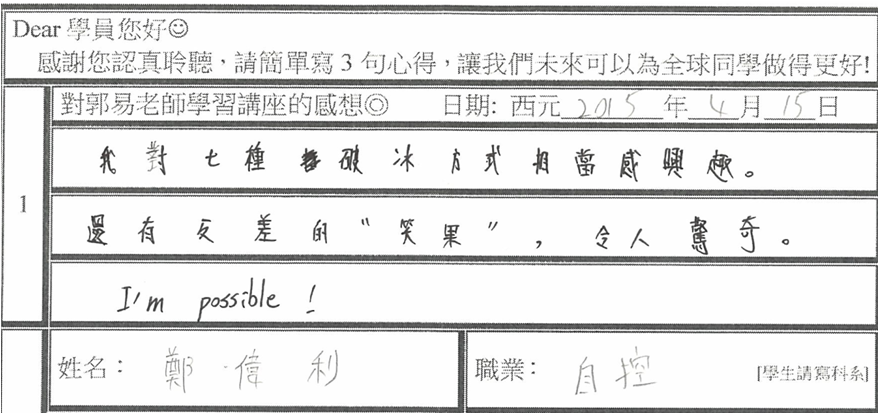 Dear 學員您好☺
感謝您認真聆聽，請簡單寫 3 句心得，讓我們未來可以為全球同學做得更好!
對郭易老師學習講座的感想◎ 日期: 西元 2015 年 4 月 15 日
1
我對七種破冰方式相當感興趣。
還有反差的“笑果”，令人驚奇。
I'm possible !
姓名： 鄭偉利
職業： 自控 [學生請寫科系]